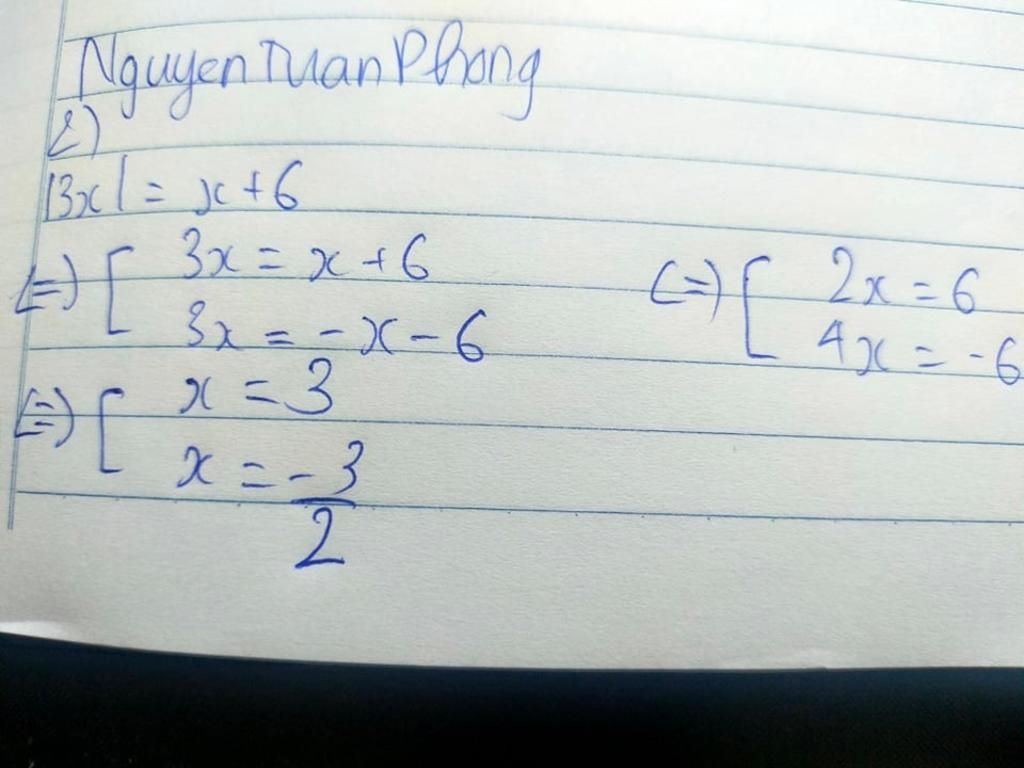 Nguyen Tuan Phong
2)
|3x| = x + 6
(=) [ 3x = x + 6
3x = -x - 6
(=) [ 2x = 6
4x = -6
(=) [ x = 3
x = -3/2